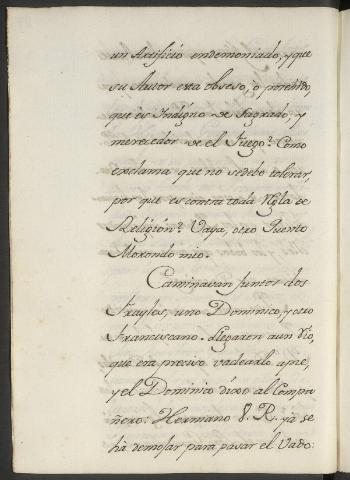 un Artificio endemoniado, y que
su Autor esta obseso, o poseido,
que es Indigno de Sagrado, y
merecedor de el Fuego? Como
exclama que no se debe tolerar,
por que es contra toda Regla de
Religión? Vaya, otro Puento
Morondo mio.
Caminavan juntos dos
Frayles, uno Dominico, y otro
Franciscano. Llegaron a un Rio,
que era preciso vadearlo a pie,
y el Dominico dixo al Compa
ñero: Hermano V. R. ya se
hà de mojar para pasar el Vado: